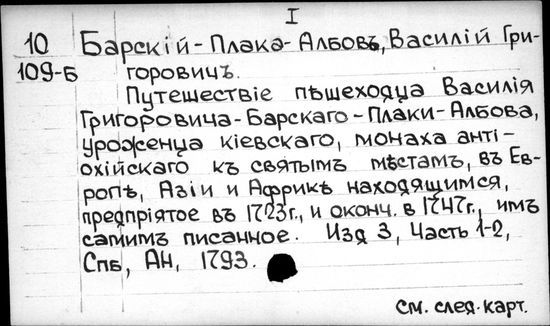 I
10 Барскій-Плака-Албовъ, Василій Гри-
109-Б горовичъ.
Путешествіе пѣшеходца Василія
Григоровича-Барскаго-Плаки-Албова,
уроженца кіевскаго, монаха анті-
охійскаго къ святымъ мѣстамъ, въ Ев-
ропѣ, Азіи и Африкѣ находящимся,
предпріятое въ 1723г., и оконч. в 1747г., имъ
самимъ писанное. Изд 3, Часть 1-2,
Спб, АН, 1793.
См. след. карт.